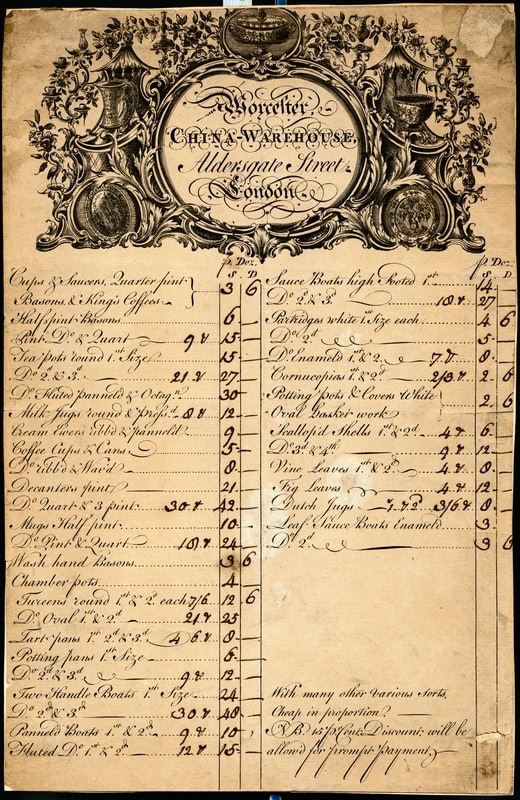 Worcester
CHINA-WAREHOUSE,
Aldersgate Street
London
p. Doz.
S D
Cups & Saucers, Quarter pint
Basons, & King's Coffees 3 6
Half pint Basons 6 —
Pint, Do. & Quart 9 & 15 —
Tea Pots round 1st Size 15 —
Do. 2d. & 3d. 21 & 27 —
Do. Fluted Panneld & Octagn. 30 —
Milk Jugs round & Press'd 8 & 12 —
Cream Ewers ribb'd & panneld 9 —
Coffee Cups & Cans 5 —
Do. ribb'd & Wav'd 8 —
Decanters pint 21 —
Do. Quart & 3 pint 30 & 42 —
Mugs Half pint 10 —
Do. Pint & Quart 18 & 24 —
Wash hand Basons 3 6
Chamber pots 4 —
Tureens round 1st. & 2d. each 7/6 12 6
Do. Oval 1st. & 2d. 21 & 25
Tart pans 1st. 2d. & 3d. 4 6 & 8 —
Potting pans 1st Size 6 —
Do. 2d. & 3d. 9 & 12 —
Two Handle Boats 1st Size 24 —
Do. 2d. & 3d. 30 & 48 —
Panneld Boats 1st. & 2d. 9 & 10 —
Fluted Do. 1st. & 2d. 12 & 15 —
p. Doz.
S D
Sauce Boats high Footed 1st. 14 —
Do. 2d. & 3d. 18 & 27 —
Partridges white 1st Size each 4 6
Do. 2d. 5 —
Do. Enameld 1st. & 2d. 7 & 8 —
Cornucopias 1st. & 2d. 2/3 & 2 6
Potting pots & Covers White
Oval Basket work 2 6
Scallopd Shells 1st. & 2d. 4 & 6 —
Do. 3d. & 4th. 9 & 12 —
Vine Leaves 1st. & 2d. 4 & 8 —
Fig Leaves 4 & 12 —
Dutch Jugs 3/6 & 8 —
Leaf Sauce Boats Enameld 3 —
Do. 2d. 3 6
With many other various sorts,
Cheap in proportion
N.B. 15 p Cent. Discount will be
allow'd for prompt Payment